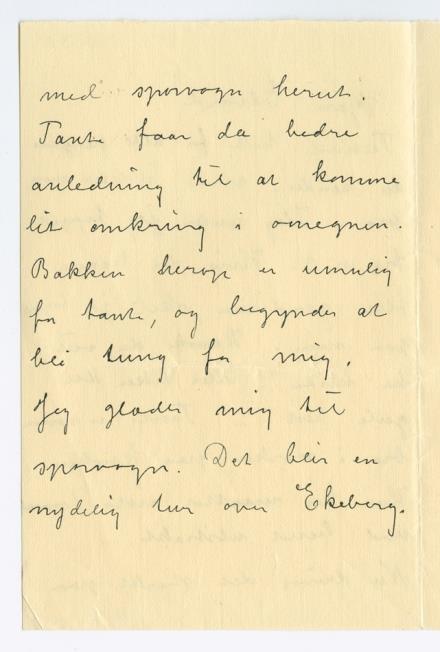 med sporvogn herut.
Tante faar da bedre
anledning til at komme
lit omkring i omegnen.
Bakken herop er umulig
for tante, og begynder at
bli tung for mig.
Jeg glæder mig til
sporvogn. Det blir en
nydelig tur over Ekeberg.